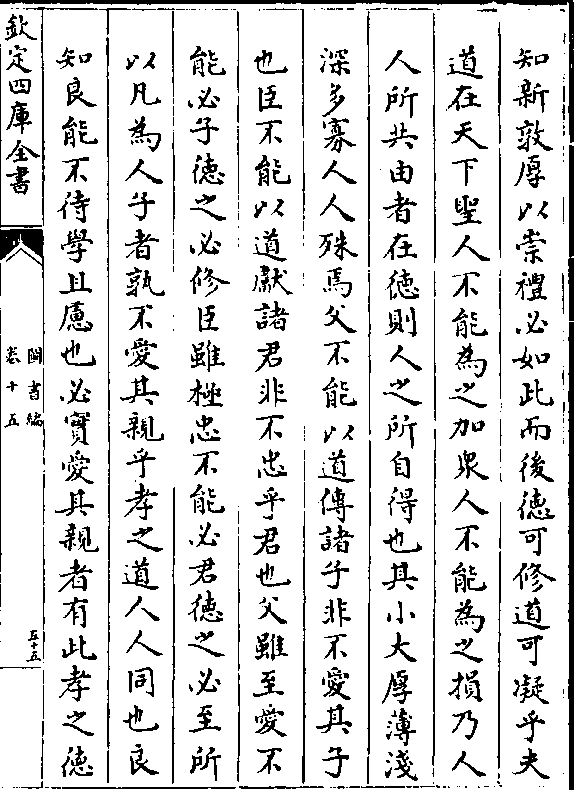 知新敦厚以崇禮必如此而後徳可修道可凝乎夫
道在天下聖人不能為之加衆人不能為之損乃人
人所共由者在徳則人之所自得也其小大厚薄淺
深多寡人人殊焉父不能以道傳諸子非不愛其子
也臣不能以道獻諸君非不忠乎君也父雖至愛不
能必子徳之必修臣雖極忠不能必君徳之必至所
以凡為人子者孰不愛其親乎孝之道人人同也良
知良能不待學且慮也必實愛其親者有此孝之徳
欽定四庫全書
圖書編
卷十五
五十五